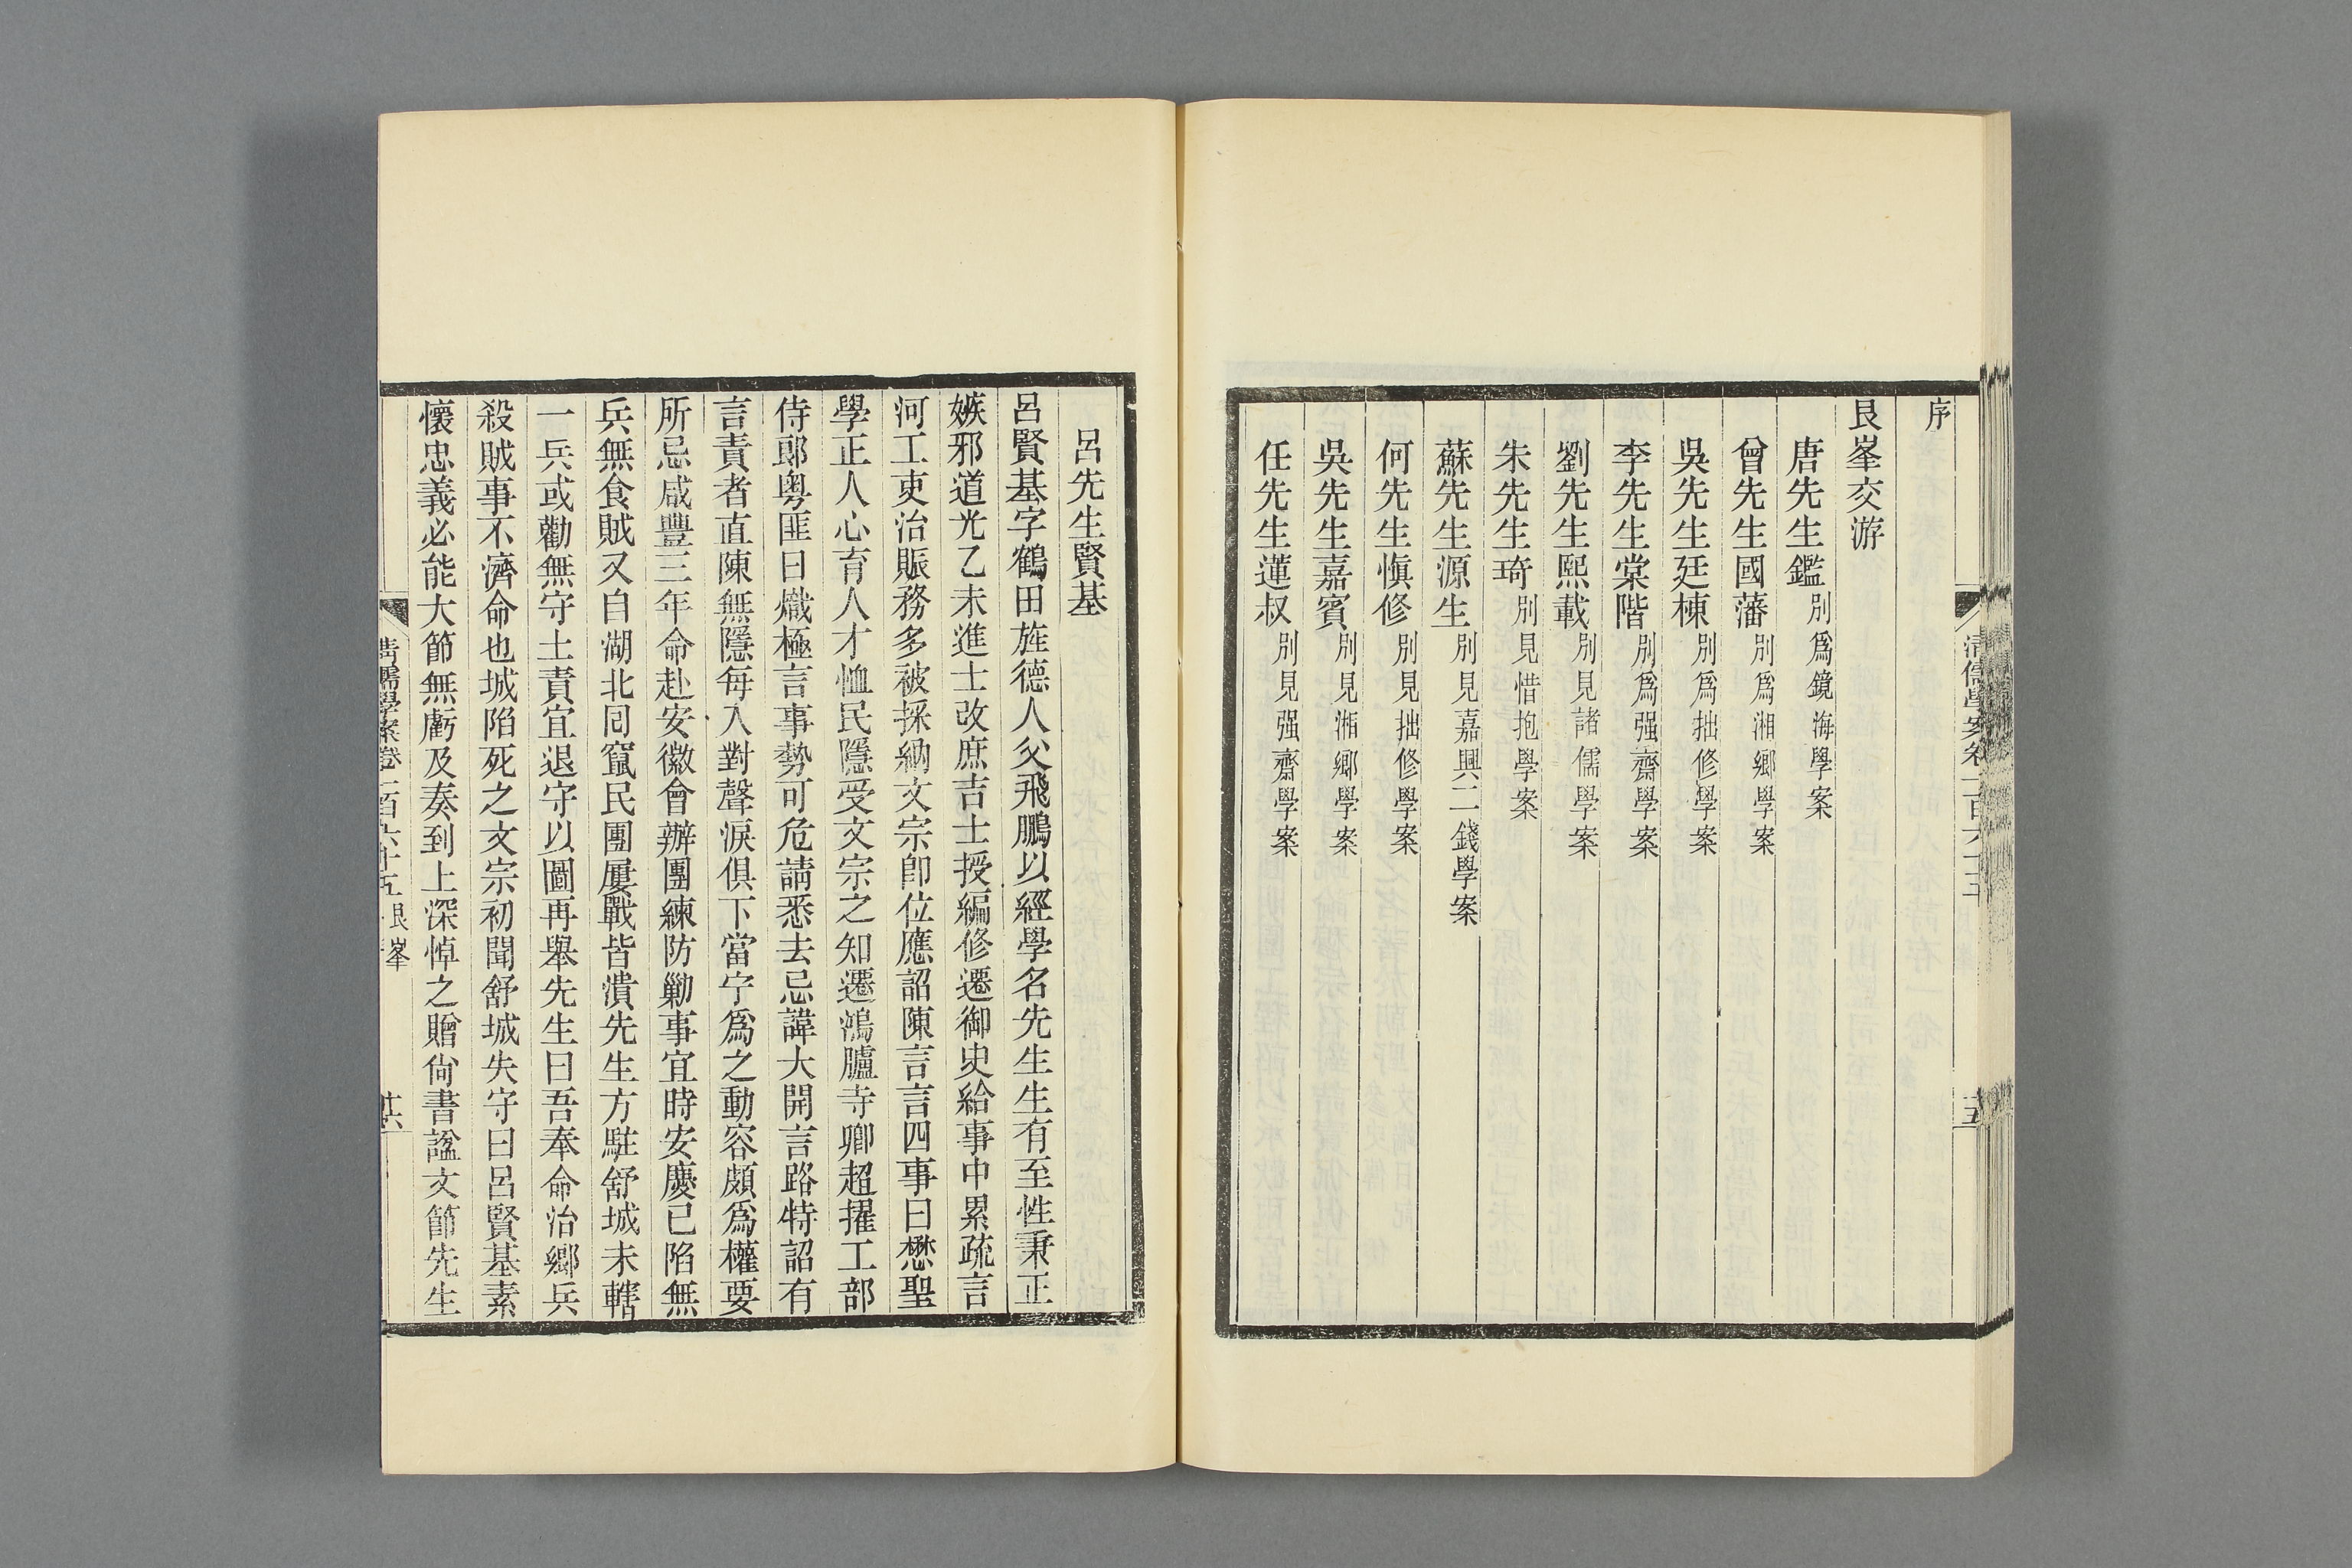 序
艮峯交游
唐先生鑑 別爲鏡海學案
曾先生國藩 別爲湘鄉學案
吳先生廷棟 別爲拙修學案
李先生棠階 別爲强齋學案
劉先生熙載 別見諸儒學案
朱先生琦 別見惜抱學案
蘇先生源生 別見嘉興二錢學案
何先生愼修 別見拙修學案
吳先生嘉賓 別見湘鄉學案
任先生蓮叔 別見强齋學案
清儒學案卷一百六十五
十五
呂先生賢基
呂賢基字鶴田旌德人父飛鵬以經學名先生生有至性秉正
嫉邪道光乙未進士改庶吉士授編修遷御史給事中累疏言
河工吏治賑務多被採納文宗卽位應詔陳言言四事曰懋聖
學正人心育人才恤民隱受文宗之知遷鴻臚寺卿超擢工部
侍郞粤匪日熾極言事勢可危請悉去忌諱大開言路特詔有
言責者直陳無隱每入對聲淚俱下當宁爲之動容頗爲權要
所忌咸豐三年命赴安徽會辦團練防勦事宜時安慶已陷無
兵無食賊又自湖北囘竄民團屢戰皆潰先生方駐舒城未轄
一兵或勸無守土責宜退守以圖再舉先生曰吾奉命治鄉兵
殺賊事不濟命也城陷死之文宗初聞舒城失守曰呂賢基素
懷忠義必能大節無虧及奏到上深悼之贈尙書諡文節先生
清儒學案卷一百六十五 艮峯
十六